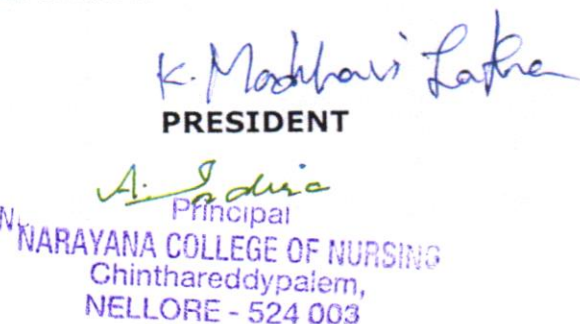 K. Madhavi Latha
PRESIDENT
A. Indira
Principal
NARAYANA COLLEGE OF NURSING
Chinthareddypalem,
NELLORE - 524 003